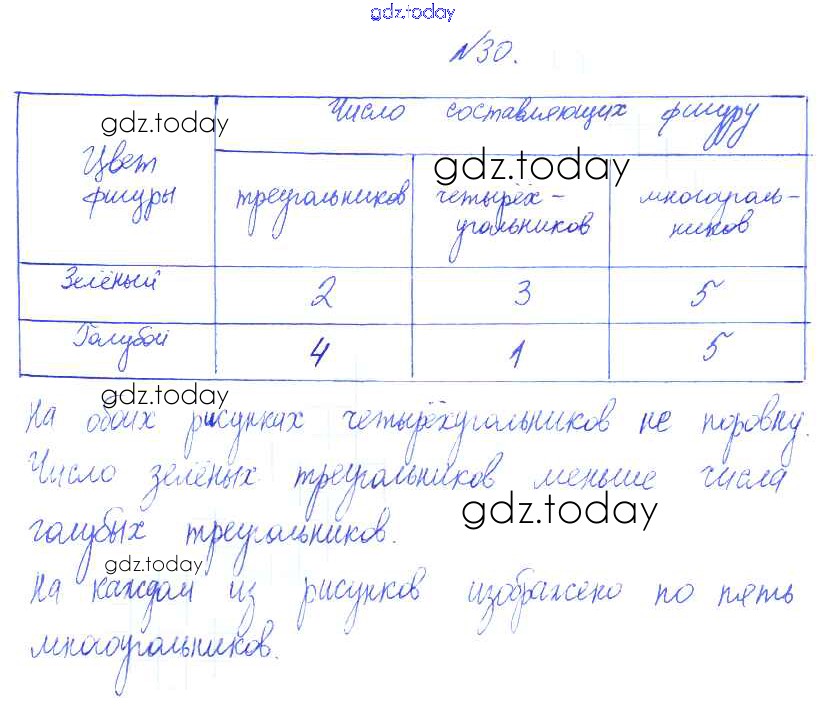 gdz.today
№30.
Число составляющих фигуру
gdz.today
Цвет фигуры
gdz.today
треугольников
четырёх-
угольников
многоуголь-
ников
Зелёный 2 3 5
Голубой 4 1 5
gdz.today
На обоих рисунках четырёхугольников не поровну.
Число зелёных треугольников меньше числа
gdz.today
голубых треугольников.
gdz.today
На каждом из рисунков изображено по пять
многоугольников.